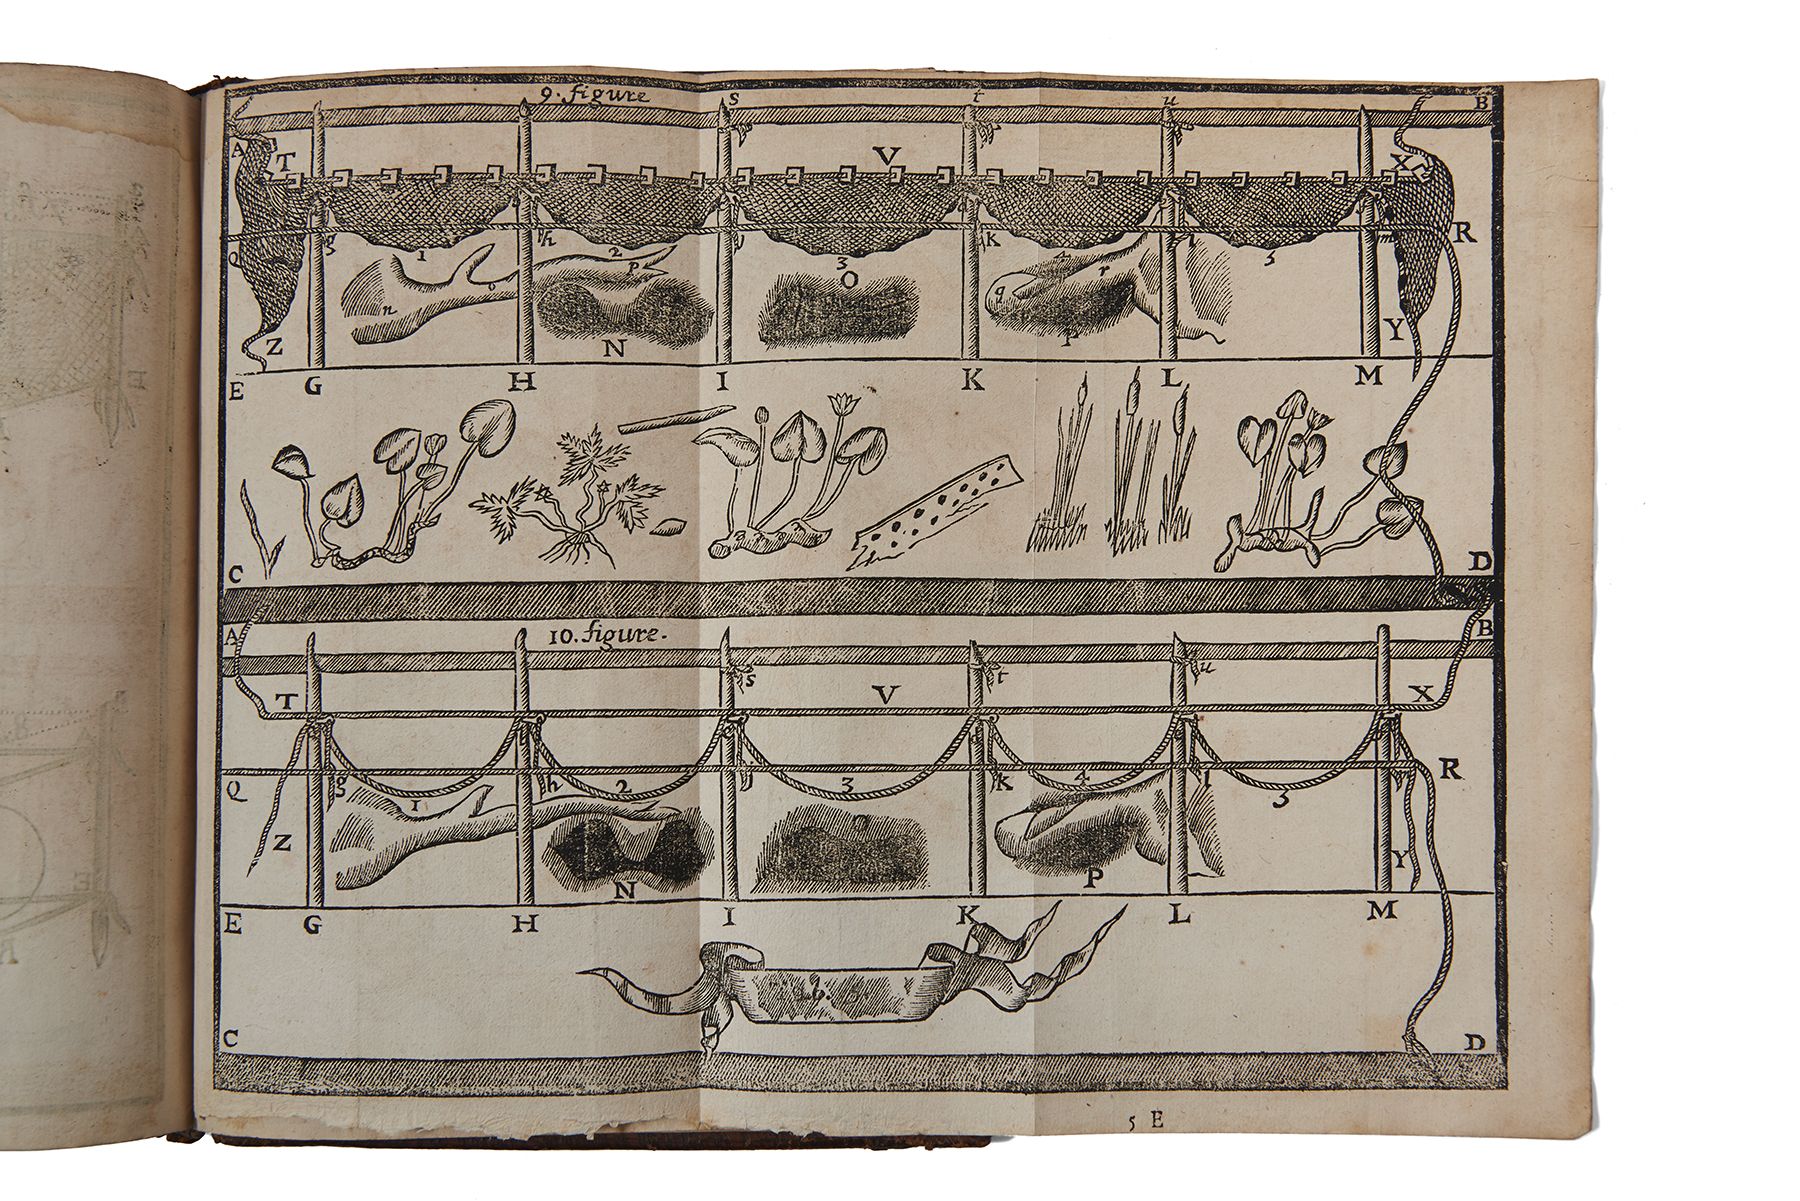 9. figure
s t u B
A T V X
Q g h i k l m R
1 2 3 4 5
n o p O q r
Z N P Y
E G H I K L M
C D
A 10. figure. B
s t u
T V X
Q g h i k l R
1 2 3 4 5
Z N P Y
E G H I K L M
C D
5 E